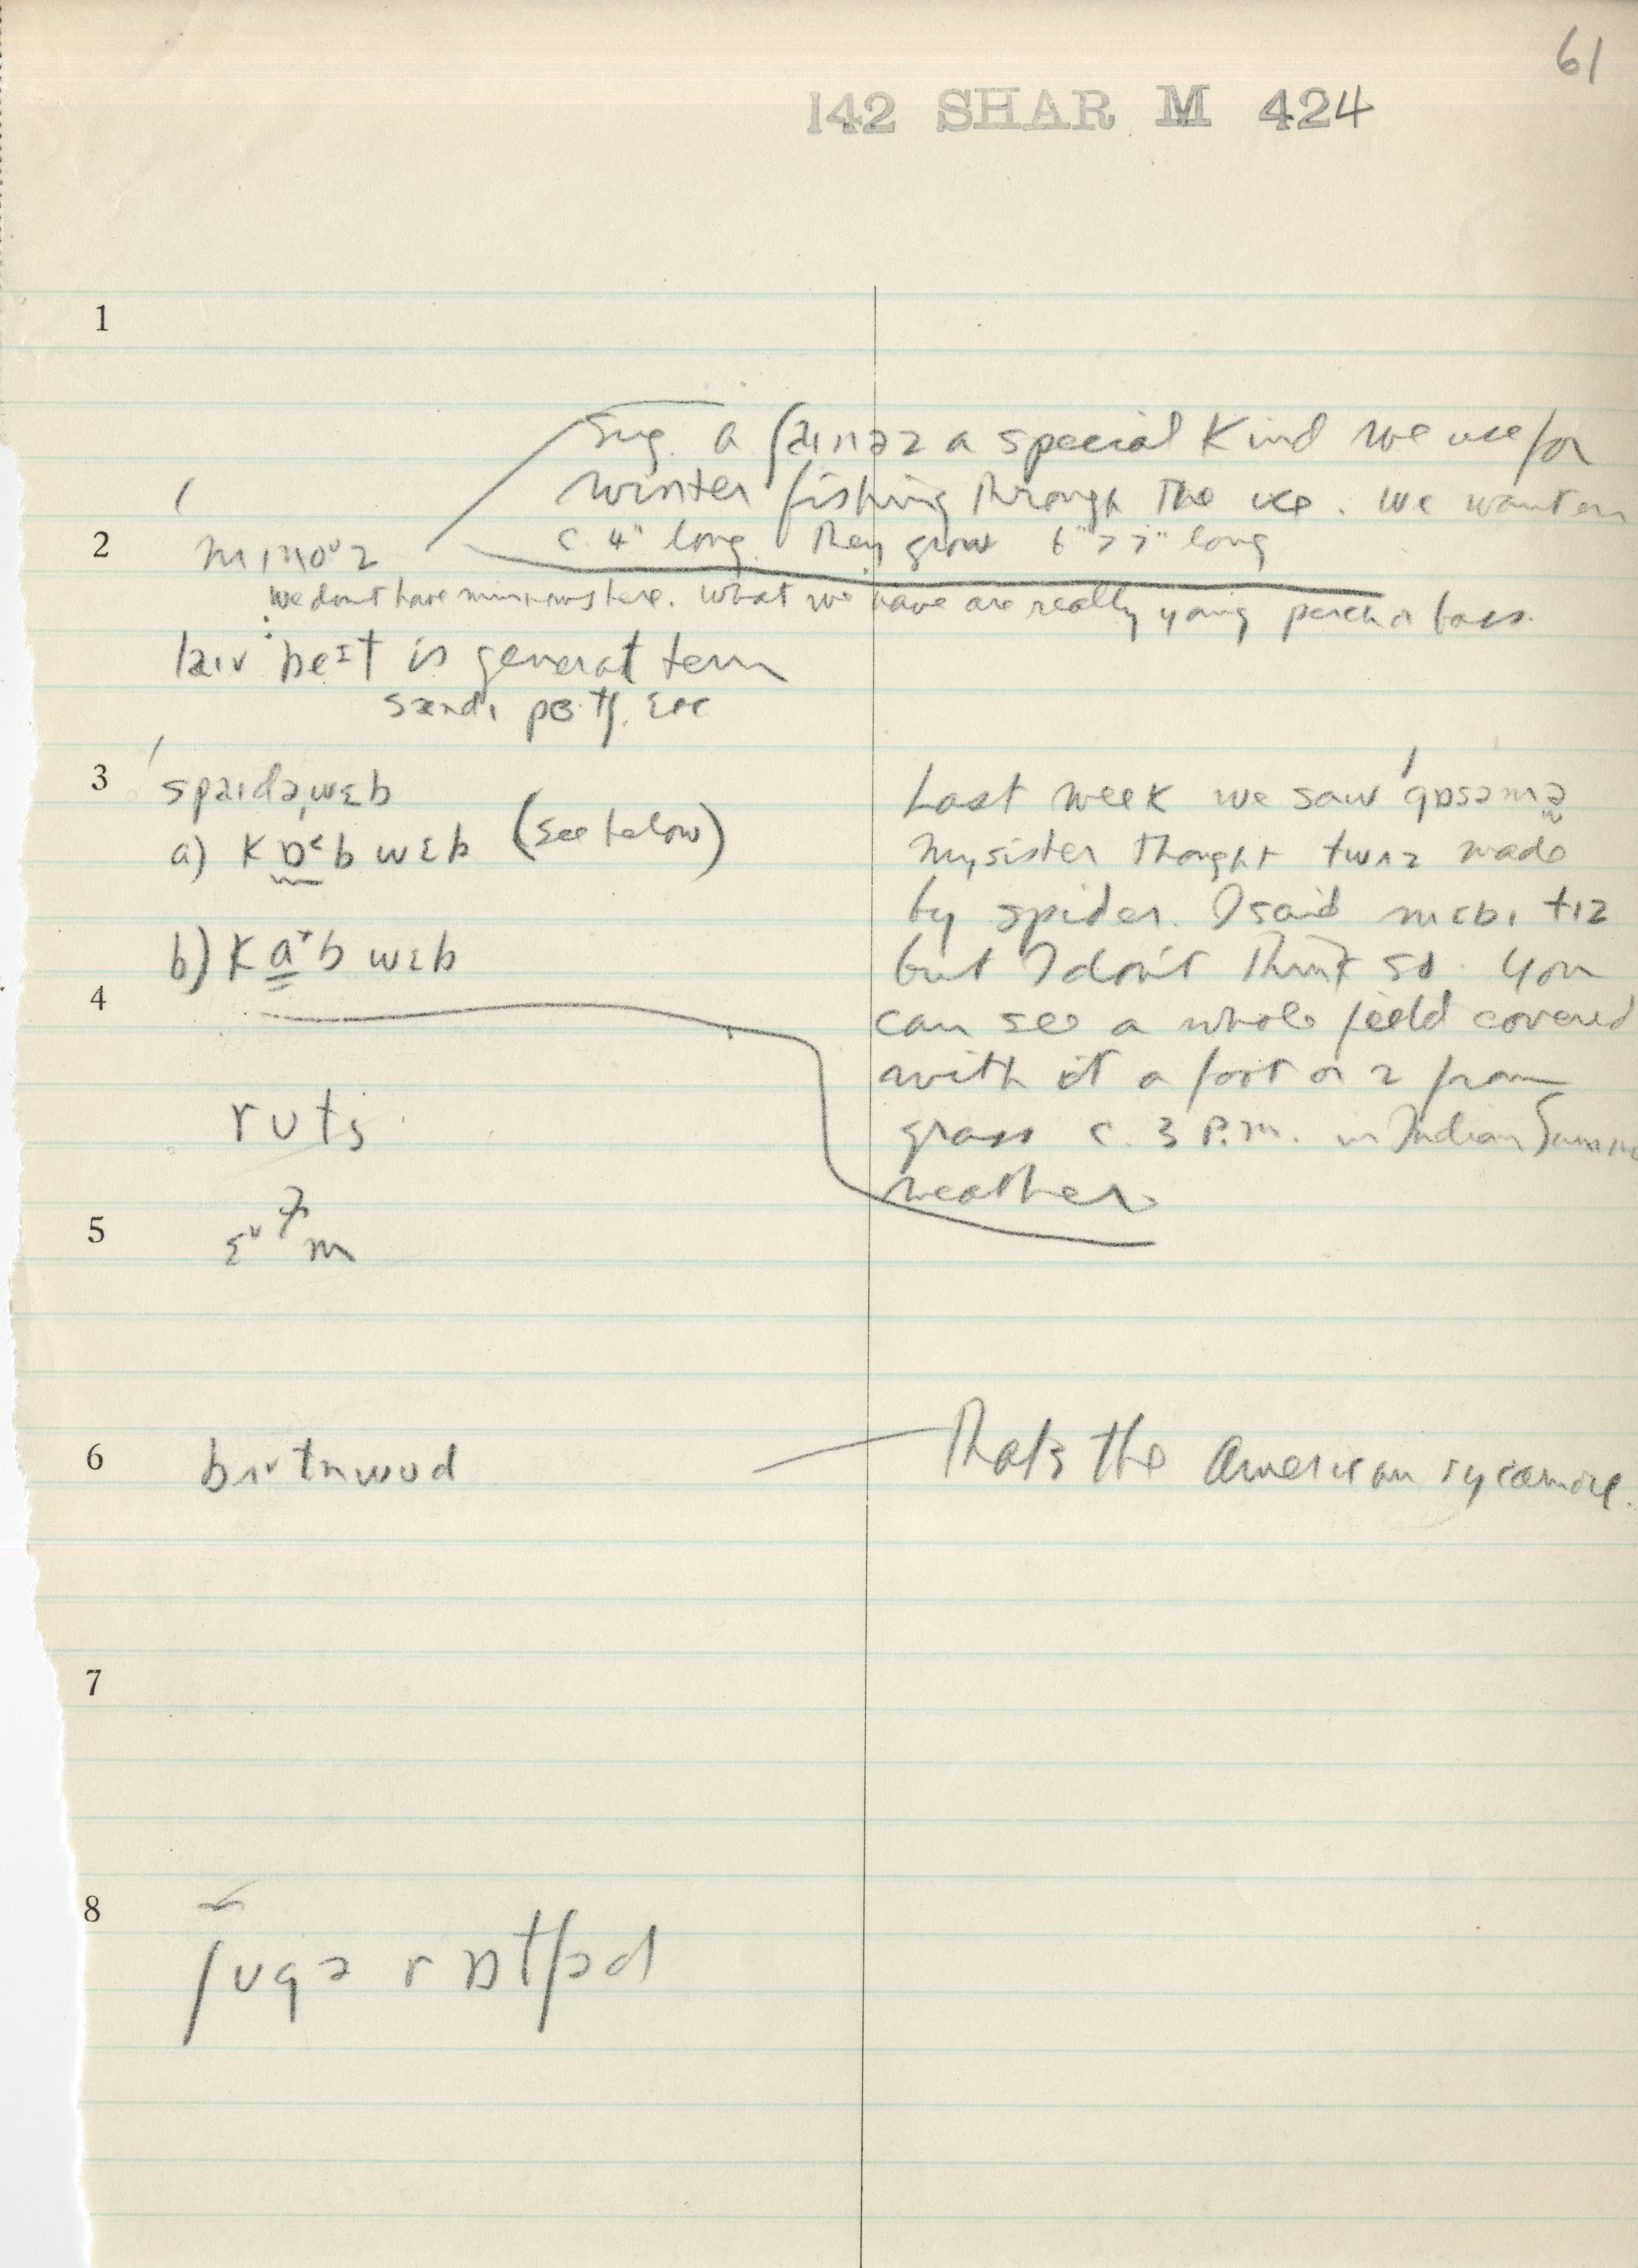 61
142 SHAR M 424
1
sug. a ʃaɪnəz a special kind we use for
winter fishing through the ice. We want em
2 mɪnoᵛz c. 4" long. They grow 6" > 7" long
We don't have minnows here. What we have are really young perch or bass.
laɪv beɪt is general term
3 spaɪdəˌwɛb
Last week we saw ˈgɒsəmə
a) kɒ˂b wɛb (see below)
My sister thought twʌz made
by spider. I said mɛbɪ tɪz
b) ka˖b wɛb
but I don't think so. You
4 can see a whole field covered
with it a foot or 2 from
ruts
grass c. 3 P.M. in Indian Summer
weather
5 ɛᵛlm
6 bʌᵛtnwud
That's the American sycamore.
7
8 ʃugə ɒtʃəd